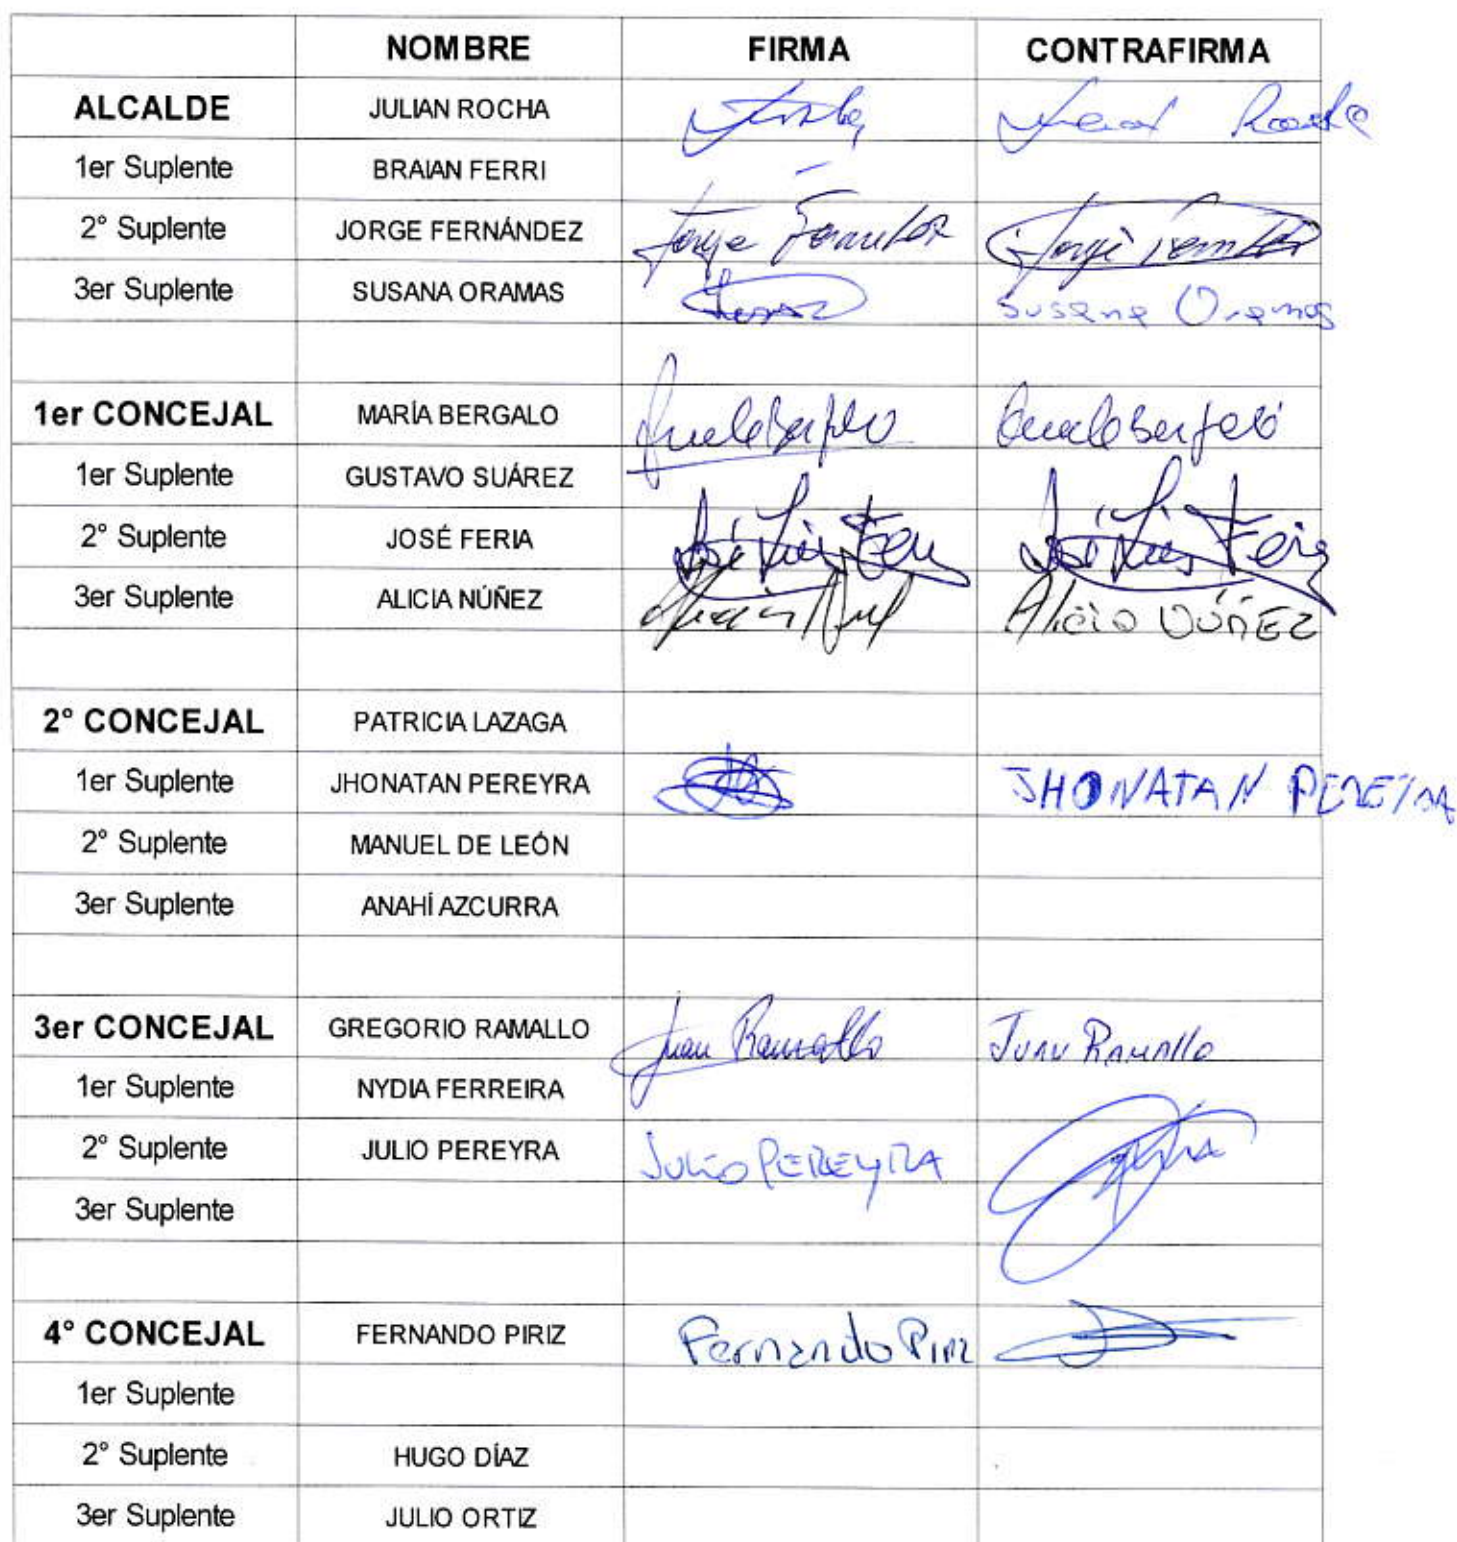 NOMBRE FIRMA CONTRAFIRMA
ALCALDE JULIAN ROCHA
1er Suplente BRAIAN FERRI
2° Suplente JORGE FERNÁNDEZ Jorge Jorge
3er Suplente SUSANA ORAMAS Susana Oramas
1er CONCEJAL MARÍA BERGALO
1er Suplente GUSTAVO SUÁREZ
2° Suplente JOSÉ FERIA José Luis José Luis Feria
3er Suplente ALICIA NÚÑEZ Alicia NÚÑEZ
2° CONCEJAL PATRICIA LAZAGA
1er Suplente JHONATAN PEREYRA JHONATAN PEREYRA
2° Suplente MANUEL DE LEÓN
3er Suplente ANAHÍ AZCURRA
3er CONCEJAL GREGORIO RAMALLO Juan Ramallo Juan Ramallo
1er Suplente NYDIA FERREIRA
2° Suplente JULIO PEREYRA JULIO PEREYRA
3er Suplente
4° CONCEJAL FERNANDO PIRIZ Fernando Piriz
1er Suplente
2° Suplente HUGO DÍAZ
3er Suplente JULIO ORTIZ